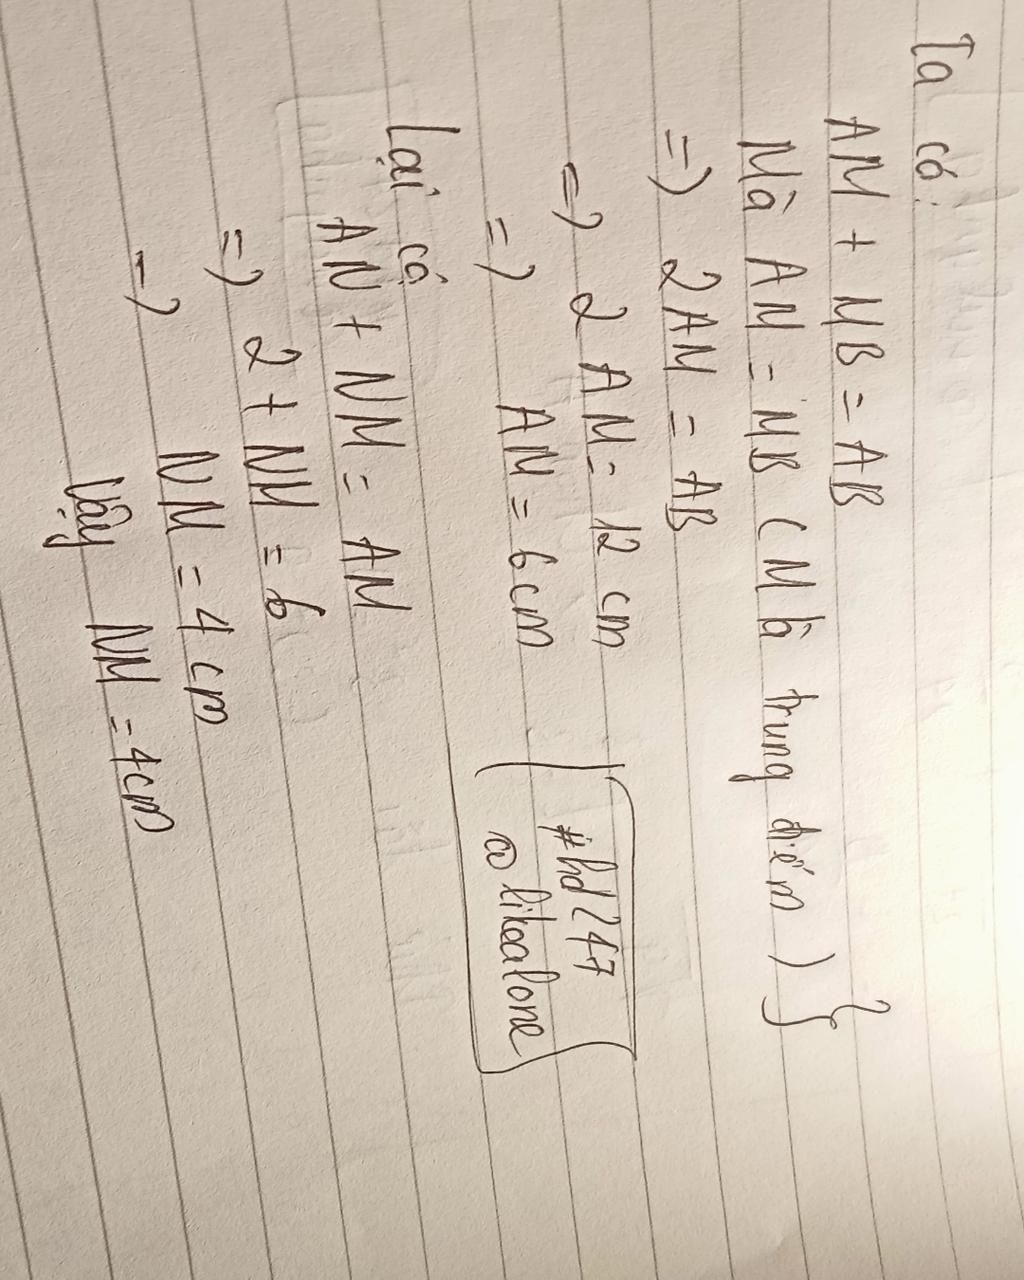 Ta có:
AM + MB = AB
Mà AM = MB (M là trung điểm) }
=> 2AM = AB
=> 2 AM = 12 cm
=> AM = 6cm
#hd247
@ likealone
Lại có
AN + NM = AM
=> 2 + NM = 6
=> NM = 4 cm
Vậy NM = 4cm